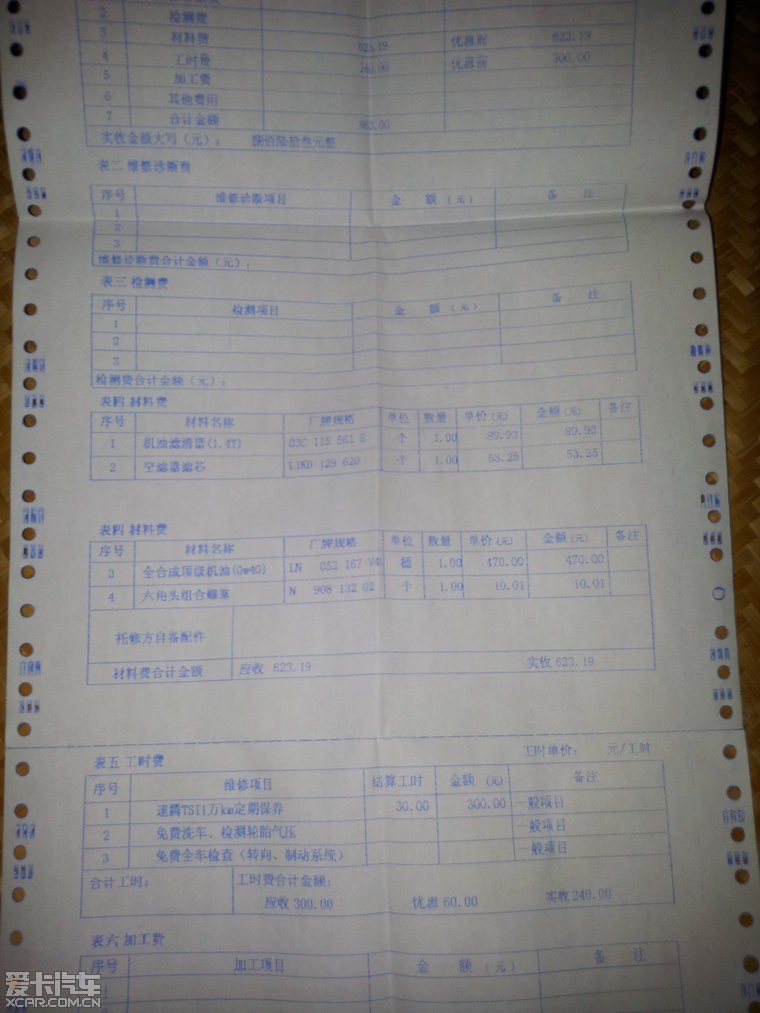 2 检测费
3 材料费 623.19 优惠前 623.19
4 工时费 240.00 优惠前 300.00
5 加工费
6 其他费用
7 合计金额 863.00
实收金额大写（元）： 捌佰陆拾叁元整
表二 维修诊断费
序号 维修诊断项目 金 额（元） 备 注
1
2
3
维修诊断费合计金额（元）：
表三 检测费
序号 检测项目 金 额（元） 备 注
1
2
3
检测费合计金额（元）：
表四 材料费
序号 材料名称 厂牌规格 单位 数量 单价(元) 金额(元) 备注
1 机油滤清器(1.4T) 03C 115 561 个 1.00 89.93 89.93
2 空滤器滤芯 L1KD 129 620 个 1.00 53.25 53.25
表四 材料费
序号 材料名称 厂牌规格 单位 数量 单价(元) 金额(元) 备注
3 全合成顶级机油(0w40) LN 052 167 桶 1.00 470.00 470.00
4 六角头组合螺塞 N 908 132 02 个 1.00 10.01 10.01
托修方自备配件
材料费合计金额 应收 623.19 实收 623.19
表五 工时费 工时单价： 元/工时
序号 维修项目 结算工时 金额 (元) 备注
1 速腾TSI1万km定期保养 30.00 300.00 一般项目
2 免费洗车、检测轮胎气压 一般项目
3 免费全车检查（转向、制动系统） 一般项目
合计工时： 工时费合计金额：
应收 300.00 优惠 60.00 实收 240.00
表六 加工费
序号 加工项目 金 额（元） 备 注
1
爱卡汽车
XCAR.COM.CN